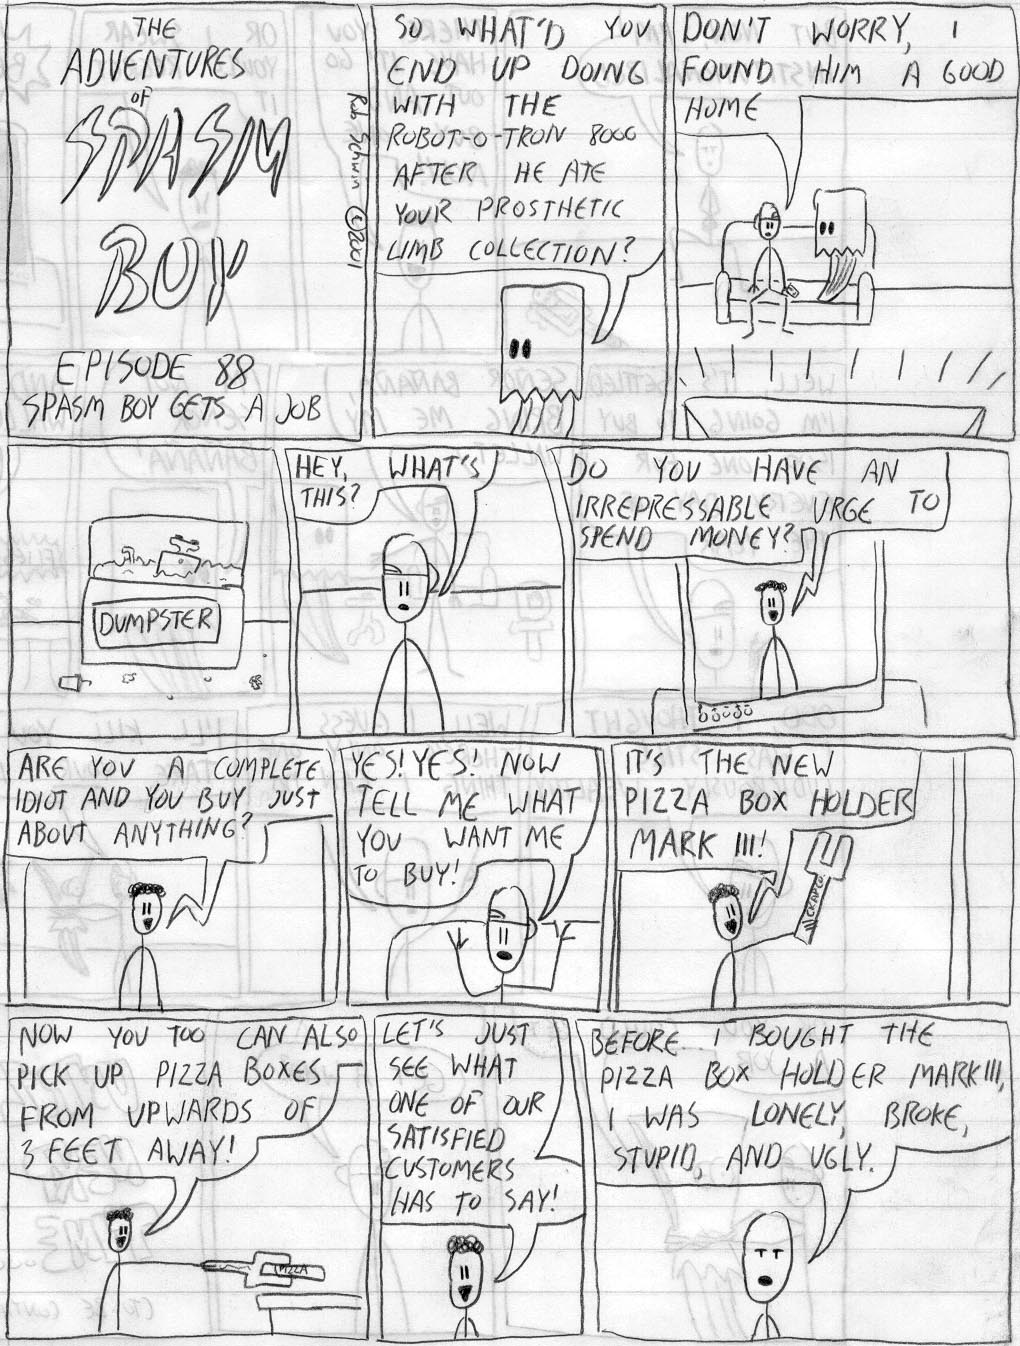 THE
ADVENTURES
OF
SPASM
BOY
Rob Schwin ©2001
EPISODE 88
SPASM BOY GETS A JOB
SO WHAT'D YOU
END UP DOING
WITH THE
ROBOT-O-TRON 8000
AFTER HE ATE
YOUR PROSTHETIC
LIMB COLLECTION?
DON'T WORRY, I
FOUND HIM A GOOD
HOME
DUMPSTER
HEY, WHAT'S
THIS?
DO YOU HAVE AN
IRREPRESSABLE URGE TO
SPEND MONEY?
ARE YOU A COMPLETE
IDIOT AND YOU BUY JUST
ABOUT ANYTHING?
YES! YES! NOW
TELL ME WHAT
YOU WANT ME
TO BUY!
IT'S THE NEW
PIZZA BOX HOLDER
MARK III!
CRAPCO
NOW YOU TOO CAN ALSO
PICK UP PIZZA BOXES
FROM UPWARDS OF
3 FEET AWAY!
PIZZA
LET'S JUST
SEE WHAT
ONE OF OUR
SATISFIED
CUSTOMERS
HAS TO SAY!
BEFORE I BOUGHT THE
PIZZA BOX HOLDER MARK III,
I WAS LONELY, BROKE,
STUPID, AND UGLY.